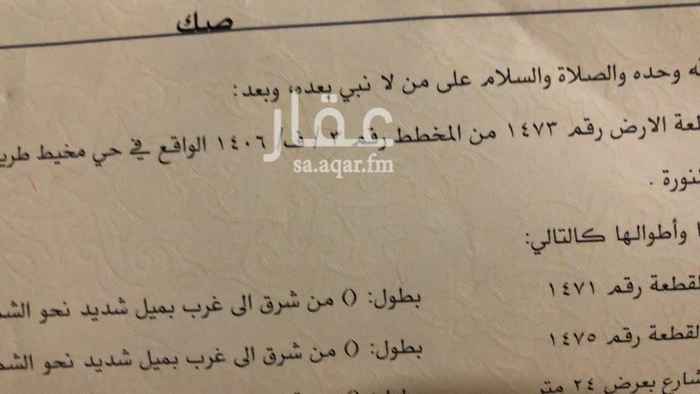 صك
وحده والصلاة والسلام على من لا نبي بعده، وبعد:
الارض رقم ١٤٧٣ من المخطط رقم ٣ / ف / ١٤٠٦ الواقع في حي مخيط
عقار
sa.aqar.fm
وأطوالها كالتالي:
القطعة رقم ١٤٧١ بطول: () من شرق الى غرب بميل شديد نحو
القطعة رقم ١٤٧٥ بطول: () من شرق الى غرب بميل شديد نحو
بعرض ٢٤ متر